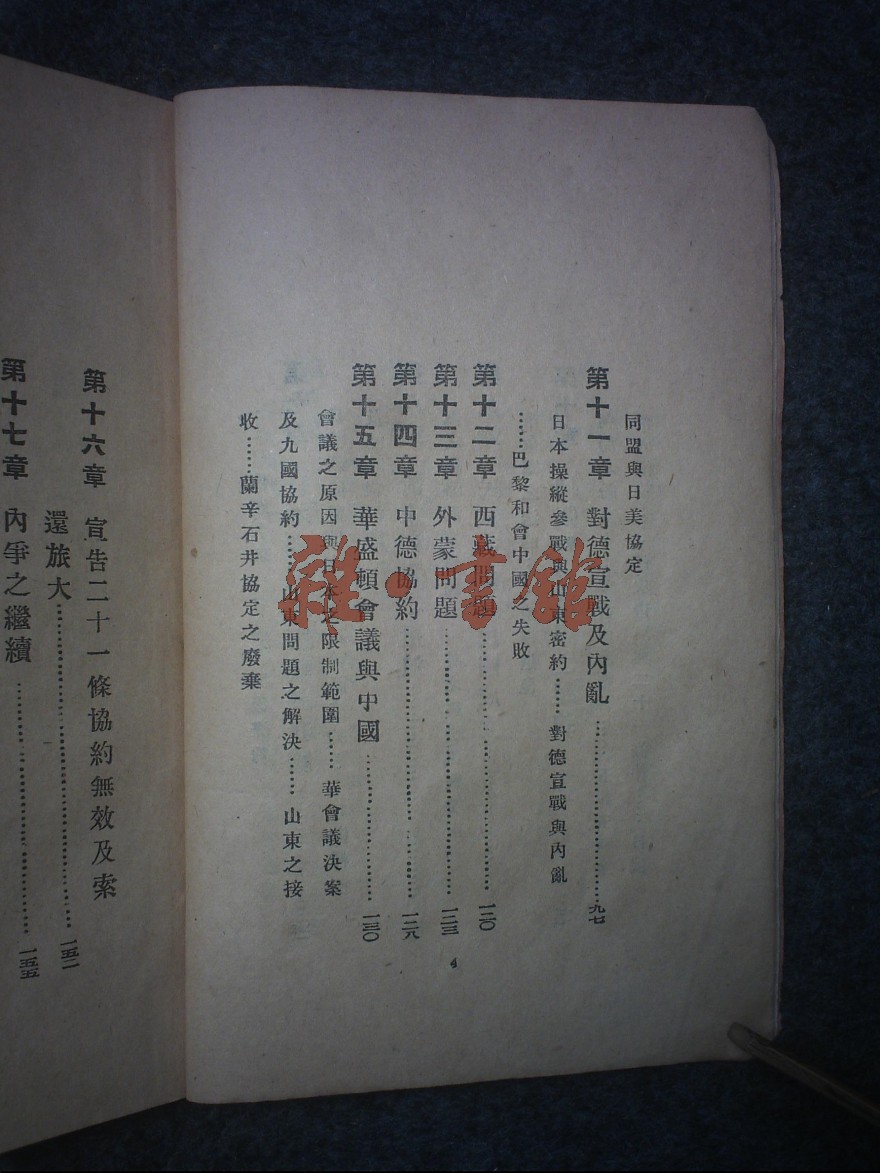 同盟與日美協定
第十一章 對德宣戰及內亂……九七
日本操縱參戰與山東密約……對德宣戰與內亂
……巴黎和會中國之失敗
第十二章 西藏問題……一二〇
第十三章 外蒙問題……一二三
第十四章 中德協約……一二八
第十五章 華盛頓會議與中國……一三〇
會議之原因與日本之限制範圍……華會議決案
及九國協約……山東問題之解決……山東之接
收……蘭辛石井協定之廢棄
4
第十六章 宣告二十一條協約無效及索
還旅大……一五二
第十七章 內爭之繼續……一五五
雜·書館